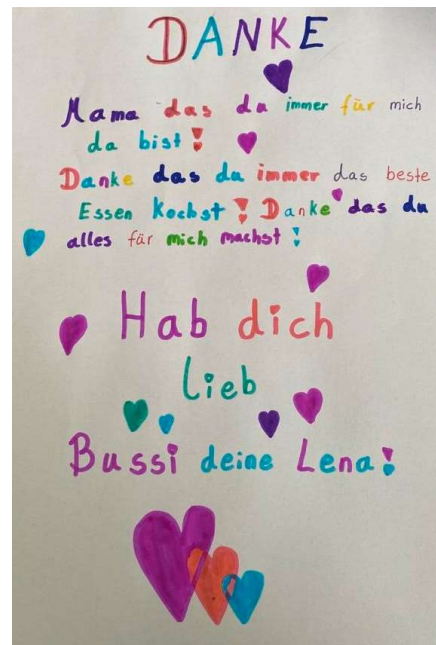 DANKE
Mama das du immer für mich
da bist!
Danke das du immer das beste
Essen kochst! Danke das du
alles für mich machst!
Hab dich
lieb
Bussi deine Lena!